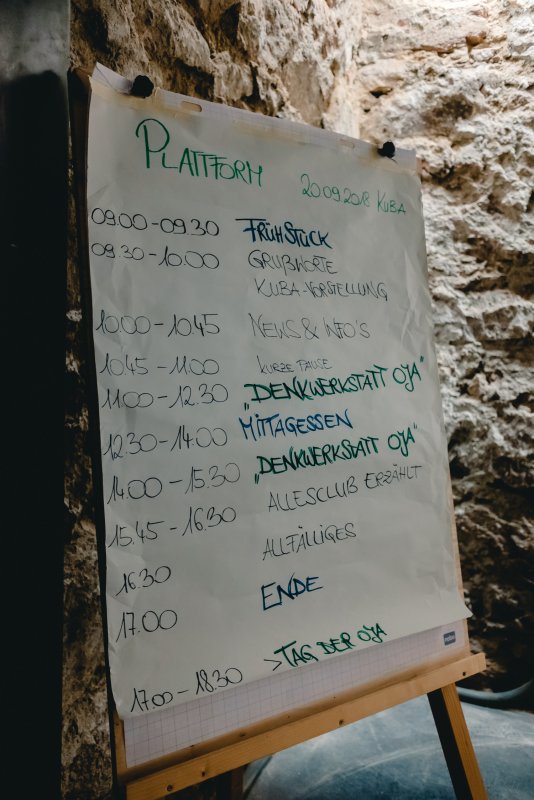 PLATTFORM 20.09.2018 KUBA
09.00-09.30 FRÜHSTÜCK
09.30-10.00 GRUßWORTE
KUBA-VORSTELLUNG
10.00-10.45 NEWS & INFO'S
10.45-11.00 KURZE PAUSE
11.00-12.30 „DENKWERKSTATT OJA“
12.30-14.00 MITTAGESSEN
14.00-15.30 „DENKWERKSTATT OJA“
15.45-16.30 ALLESCLUB ERZÄHLT
16.30 ALLFÄLLIGES
17.00 ENDE
17.00-18.30 >TAG DER OJA